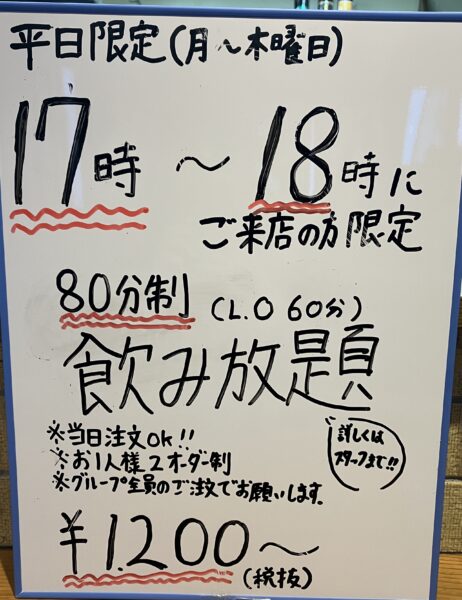 平日限定(月~木曜日)
17時 ~ 18時に
ご来店の方限定
80分制 (L.O 60分)
飲み放題
※当日注文OK!!
※お1人様2オーダー制
※グループ全員のご注文でお願いします。
詳しくは
スタッフまで!!
¥1.200~
(税抜)